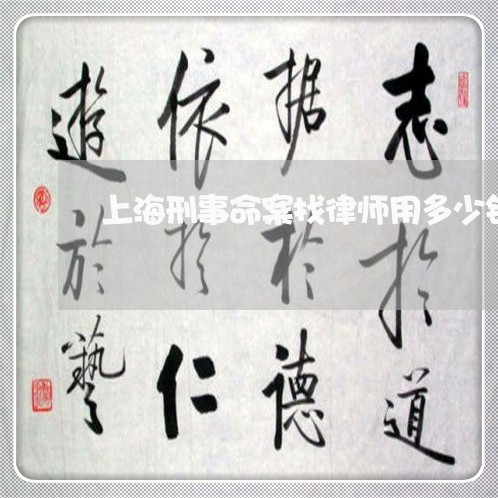 志於道
据於德
依於仁
遊於藝
上海刑事命案找律师用多少